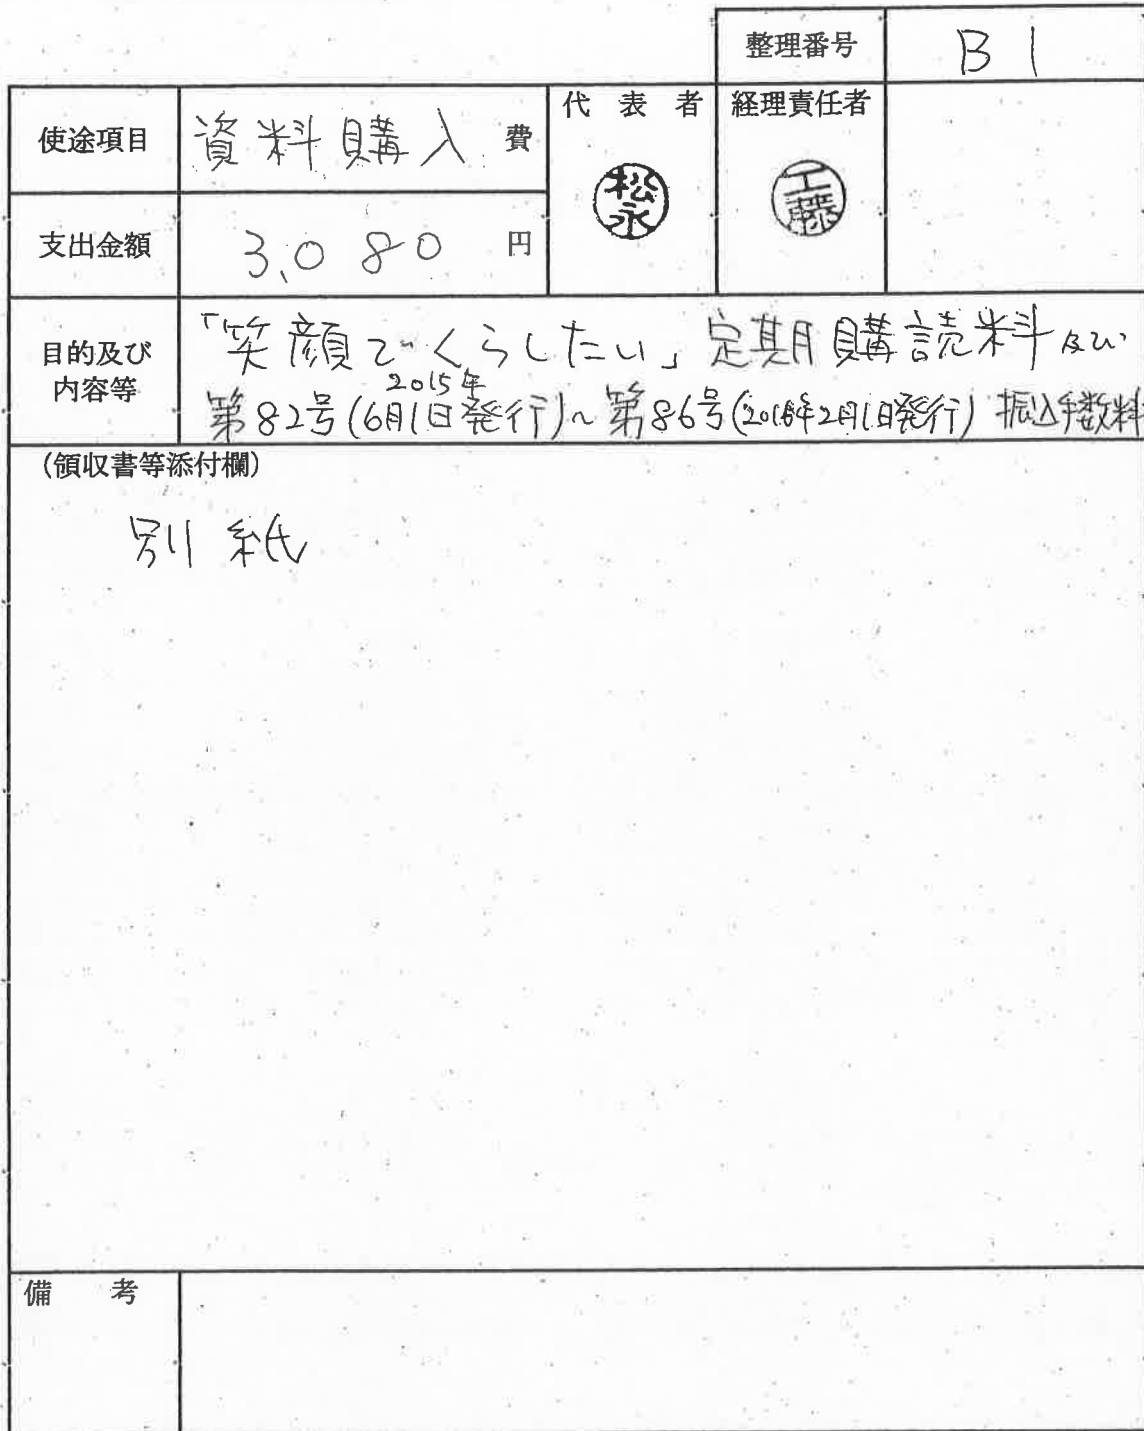 整理番号 B1
使途項目 資料購入費 代表者 経理責任者
松永 工藤
支出金額 3,080 円
目的及び内容等
「笑顔でくらしたい」定期購読料及び
2015年
第82号(6月1日発行)~第86号(2016年2月1日発行) 振込手数料
(領収書等添付欄)
別紙
備考